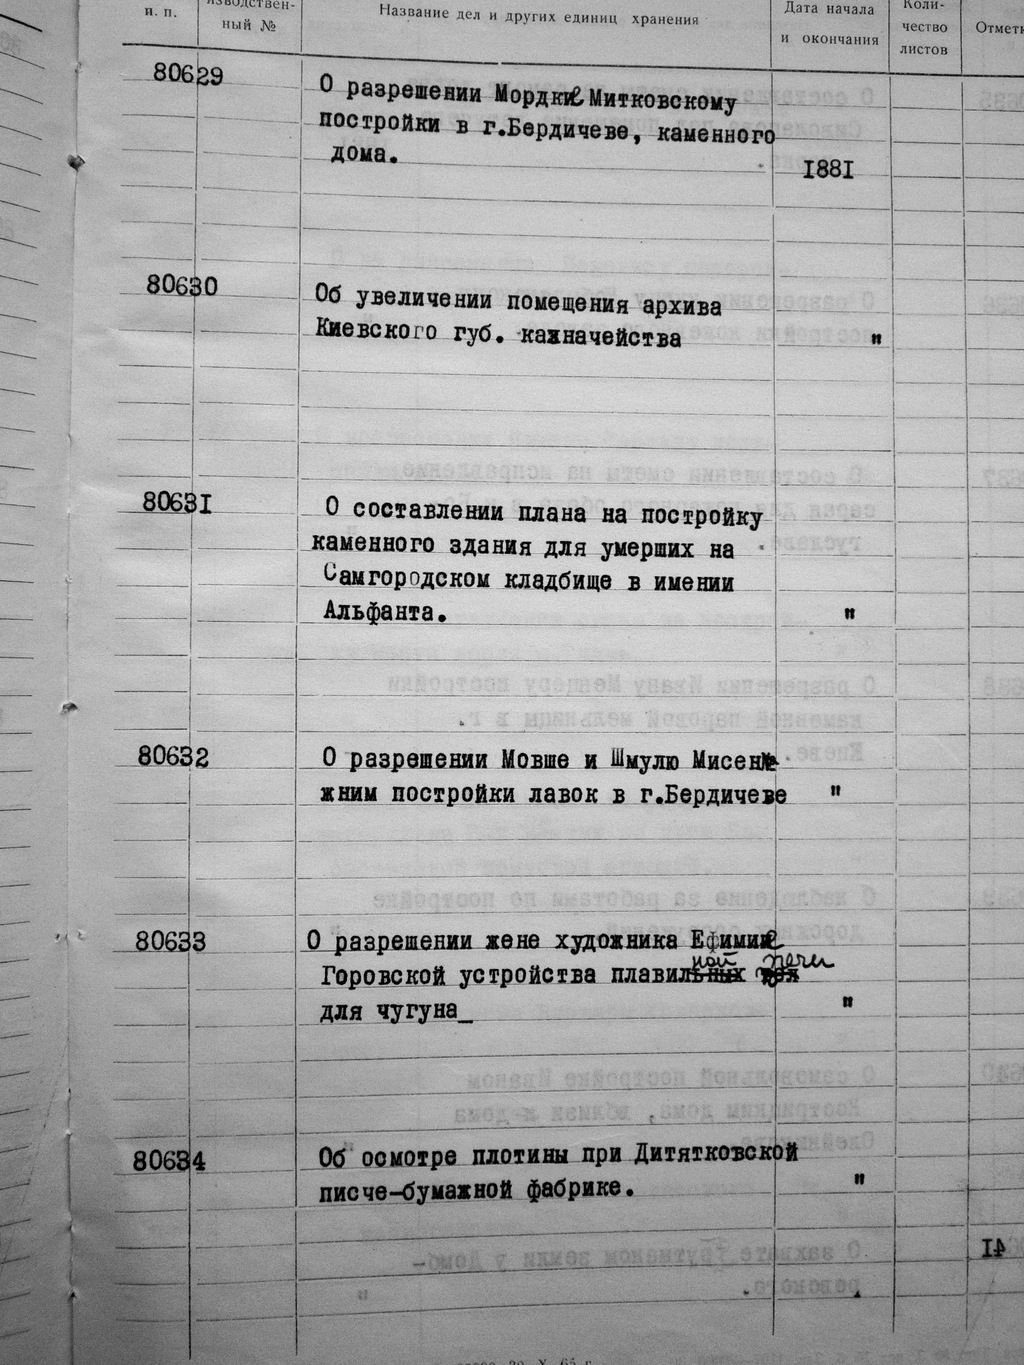 и. п.
изводствен-
ный №
Название дел и других единиц хранения
Дата начала
и окончания
Коли-
чество
листов
80629
О разрешении Мордке Митковскому
постройки в г.Бердичеве, каменного
дома.
I88I
80630
Об увеличении помещения архива
Киевского губ. казначейства "
8063I
О составлении плана на постройку
каменного здания для умерших на
Самгородском кладбище в имении
Альфанта. "
80632
О разрешении Мовше и Шмулю Мисен-
жним постройки лавок в г.Бердичеве "
80633
О разрешении жене художника Ефимие
ной печи
Горовской устройства плавильных
для чугуна_ "
80634
Об осмотре плотины при Дитятковской
писче-бумажной фабрике. "